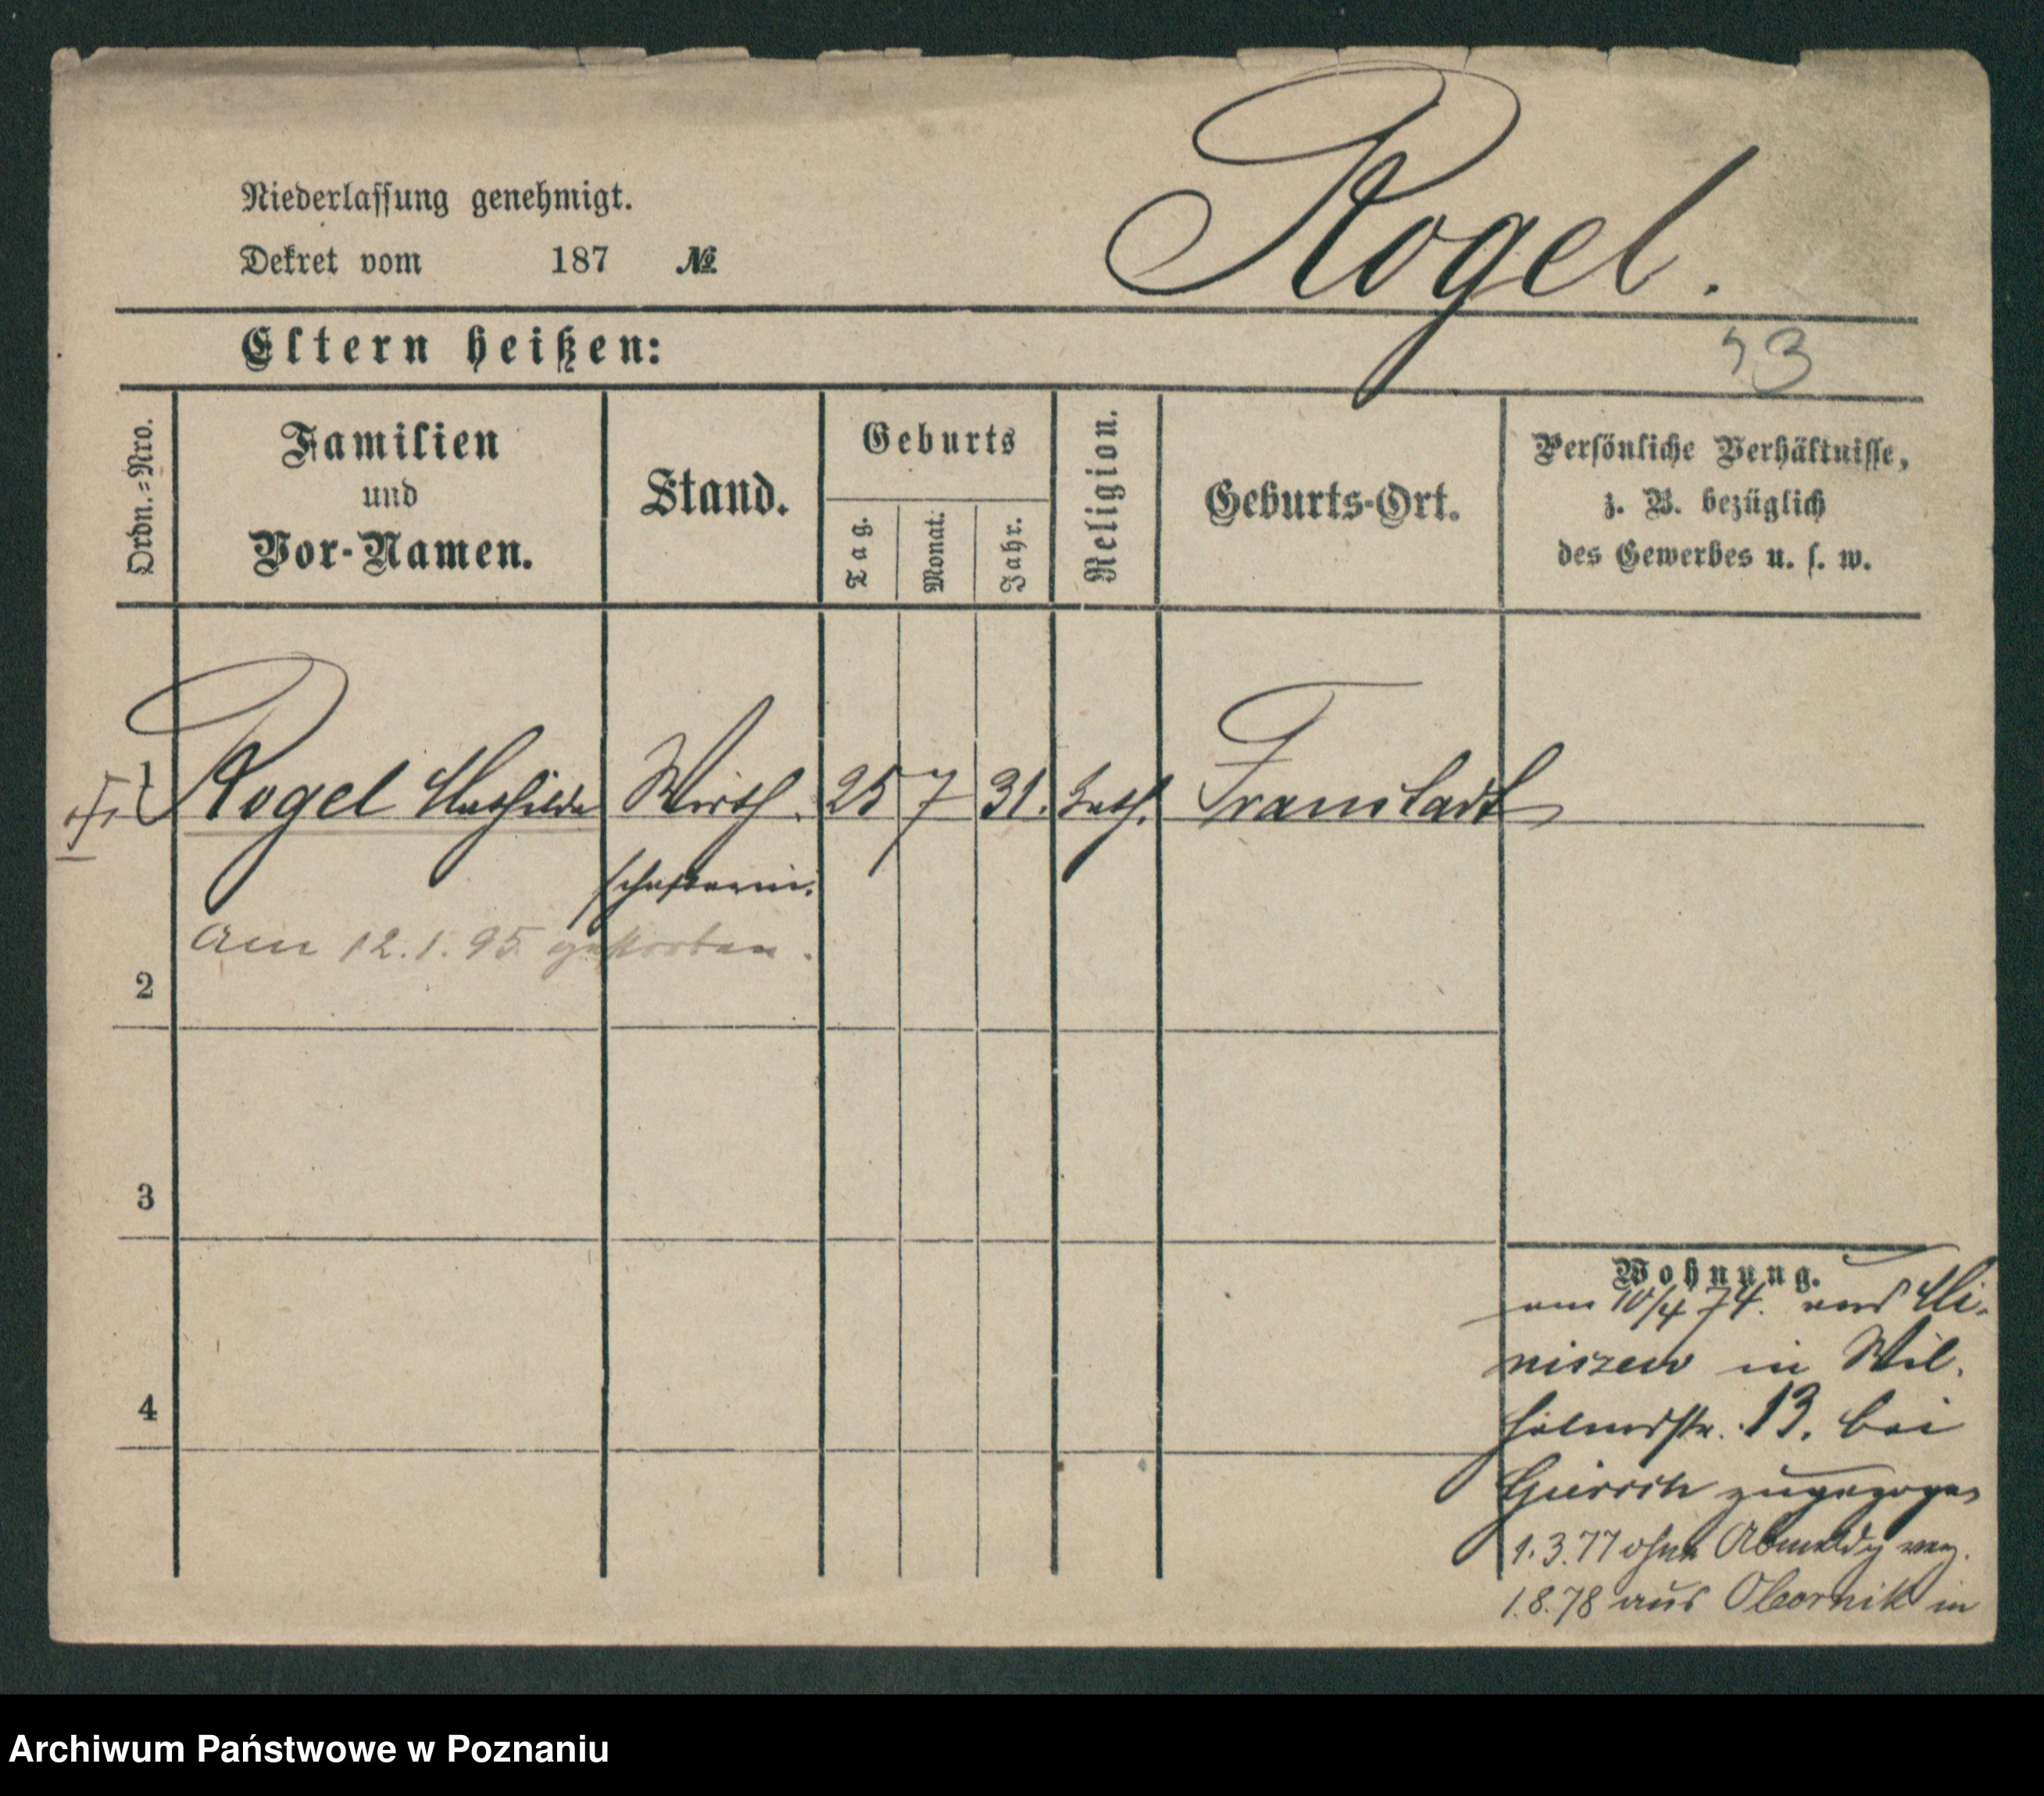 Rogel.
Niederlassung genehmigt.
Dekret vom 187 №
Eltern heißen:
Ordn.-Nro.
Familien
und
Vor-Namen.
Stand.
Geburts
Tag.
Monat.
Jahr.
Religion.
Geburts-Ort.
Persönliche Verhältnisse,
z. B. bezüglich
des Gewerbes u. s. w.
1 Rogel Mathilde Wirth 25 7 31. kath. Fraustadt
schafterin.
Am 12.1.95 gestorben.
2
3
4
Wohnung.
am 10/4 74. aus
in Wil-
helmstr. 13. bei
zugezogen
1.3.77 ohne Abmeldg weg.
1.8.78 aus Obornik in
Archiwum Państwowe w Poznaniu